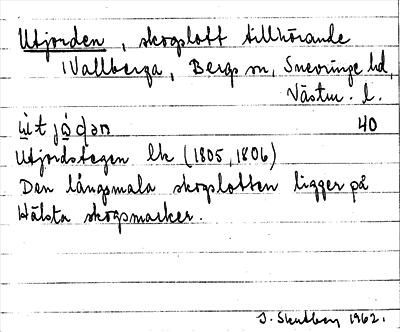 Utjorden, skogslott tillhörande
Vallberga, Bergs sn, Snevringe hd,
Västm. l.
40
Utjordstegen lk (1805, 1806)
Den långsmala skogslotten ligger på
Hälsta skogsmarker.
1962.